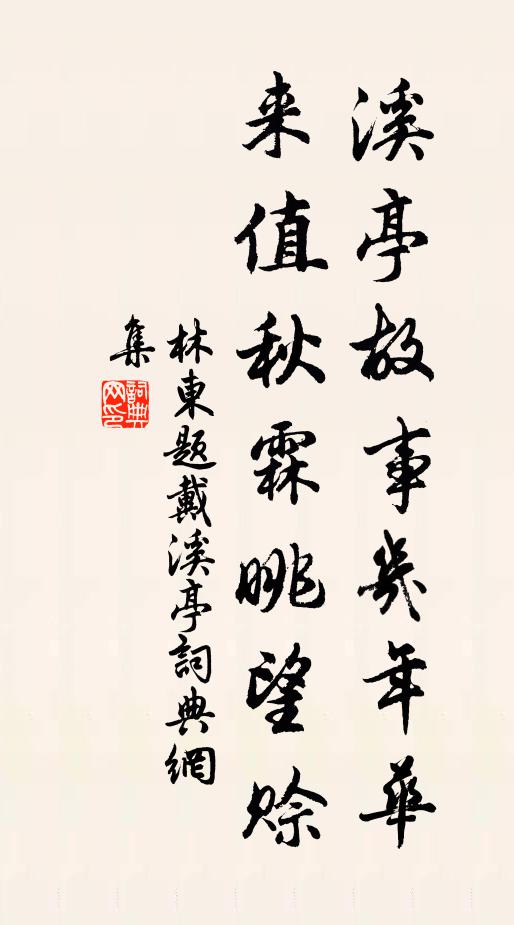 溪亭故事幾年華
来值秋霖眺望賒
林東題戴溪亭詞典網
集
詞典网印